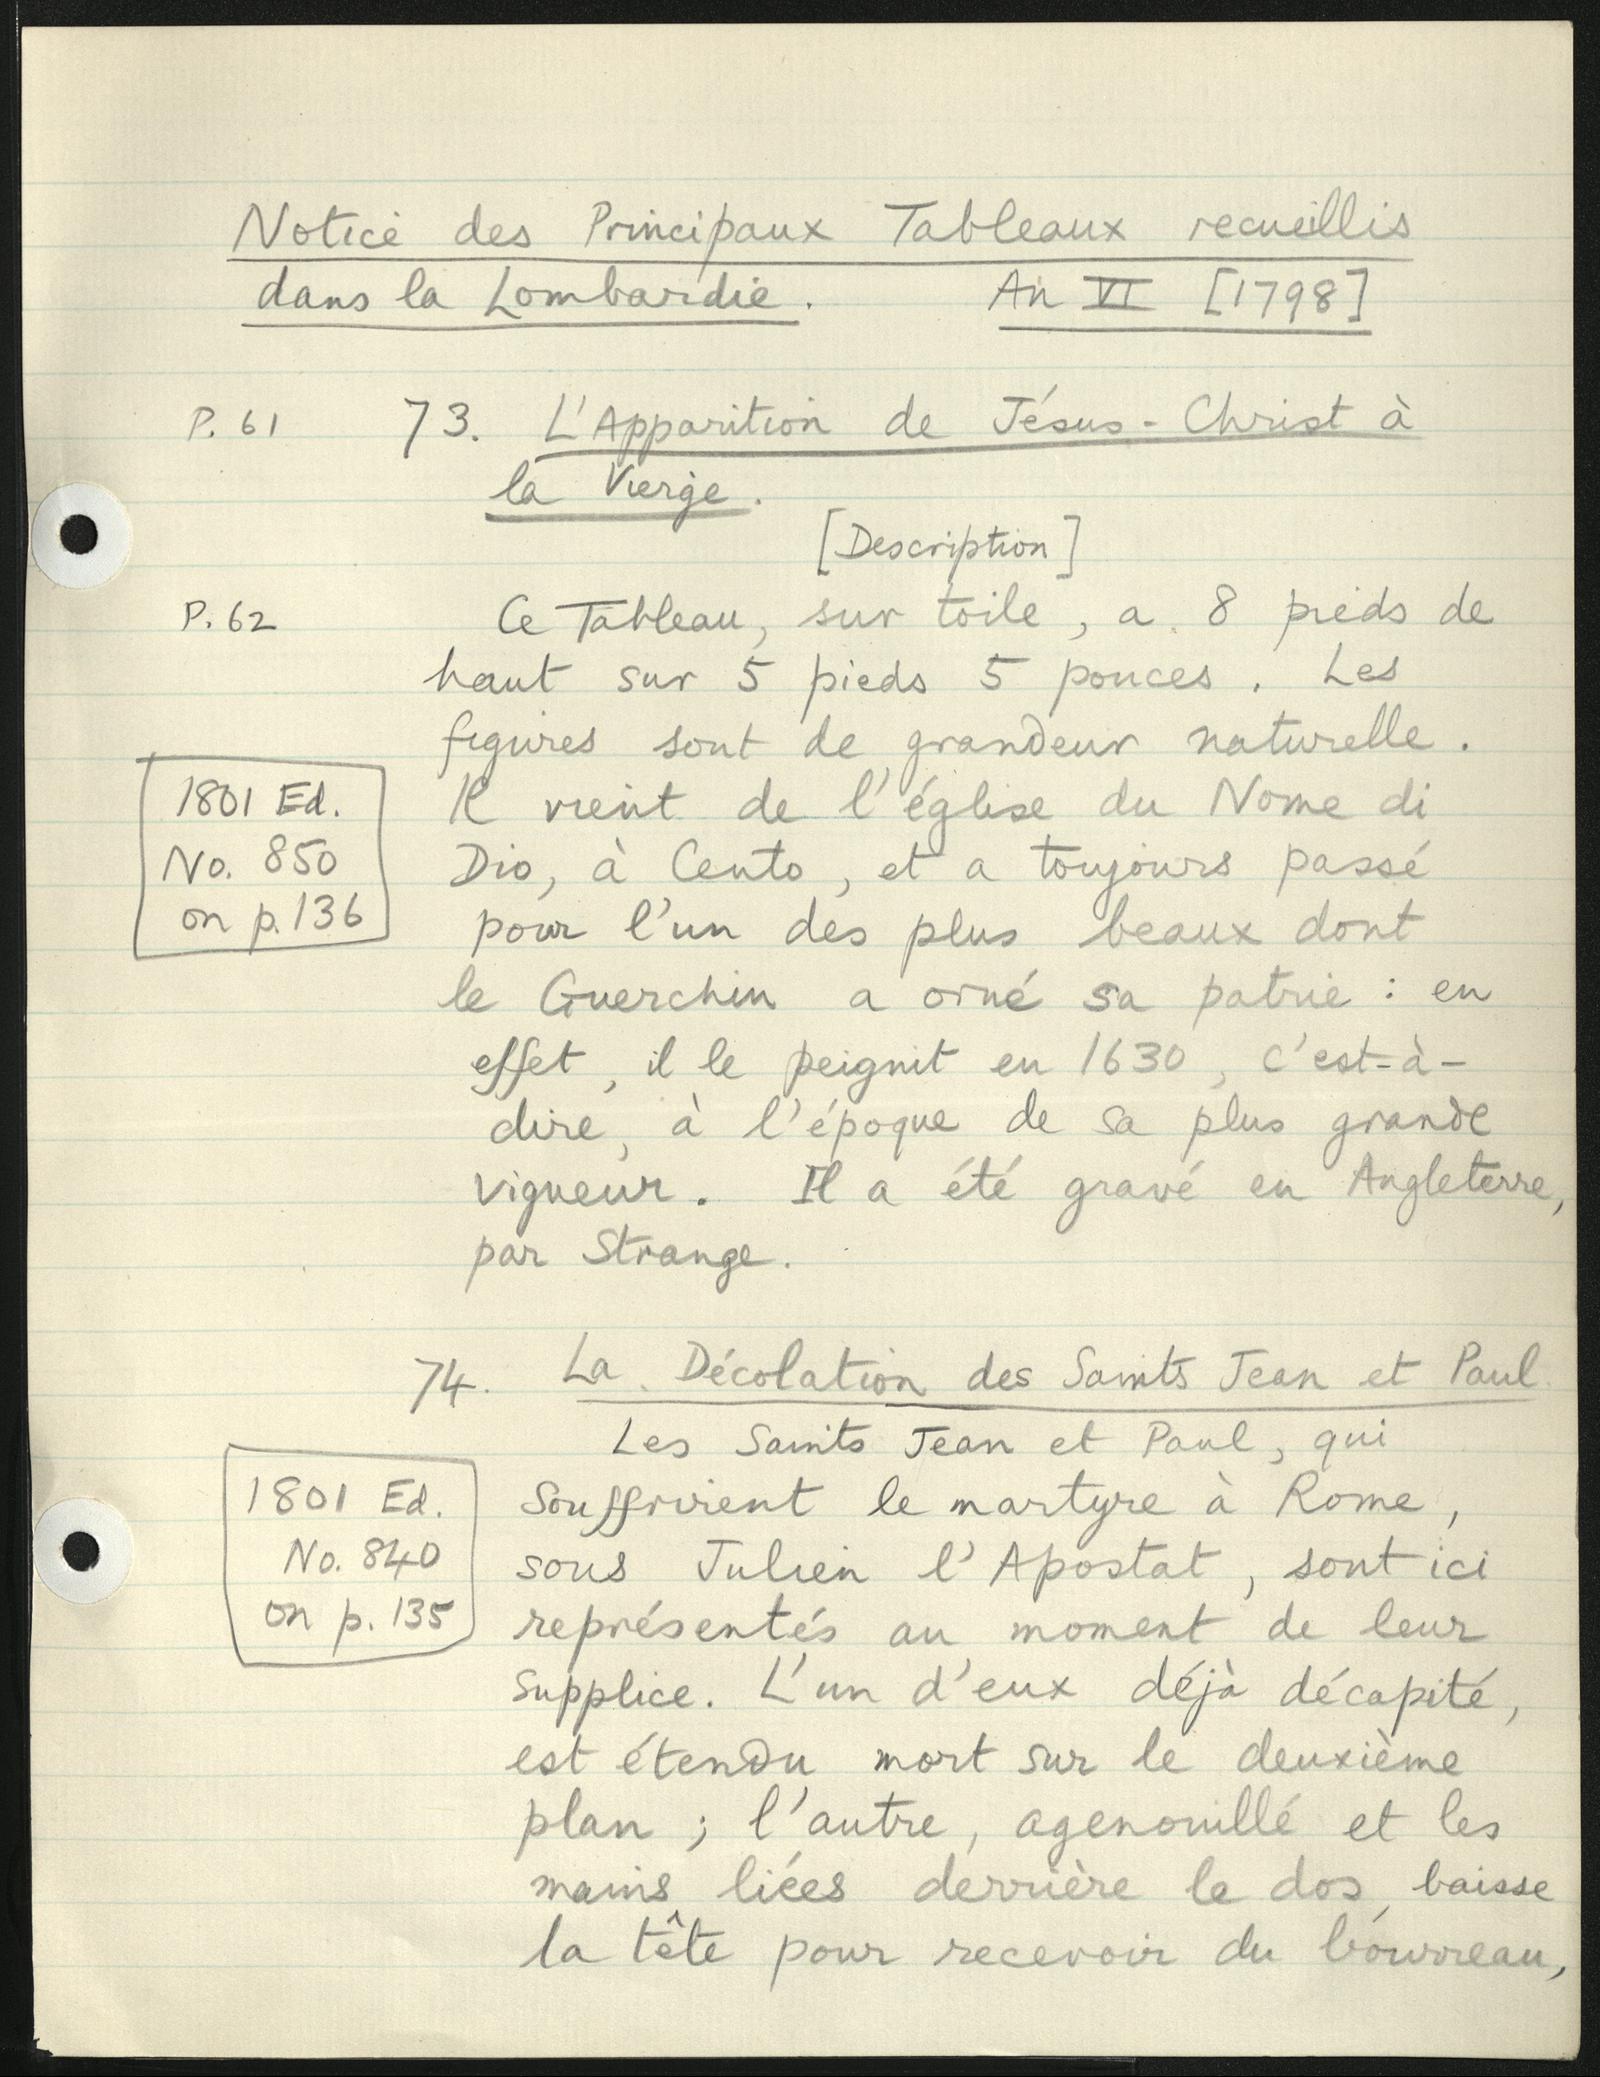 Notice des Principaux Tableaux recueillis
dans la Lombardie. An VI [1798]
P. 61 73. L'Apparition de Jésus-Christ à
la Vierge.
[Description]
P. 62 Ce Tableau, sur toile, a 8 pieds de
haut sur 5 pieds 5 pouces. Les
figures sont de grandeur naturelle.
Il vient de l'église du Nome di
Dio, à Cento, et a toujours passé
pour l'un des plus beaux dont
le Guerchin a orné sa patrie : en
effet, il le peignit en 1630, c'est-à-
dire, à l'époque de sa plus grande
vigueur. Il a été gravé en Angleterre,
par Strange.
1801 Ed.
No. 850
on p. 136
74. La Décolation des Saints Jean et Paul
Les Saints Jean et Paul, qui
souffrirent le martyre à Rome,
sous Julien l'Apostat, sont ici
représentés au moment de leur
supplice. L'un d'eux déjà décapité,
est étendu mort sur le deuxième
plan ; l'autre, agenouillé et les
mains liées derrière le dos, baisse
la tête pour recevoir du bourreau,
1801 Ed.
No. 840
on p. 135